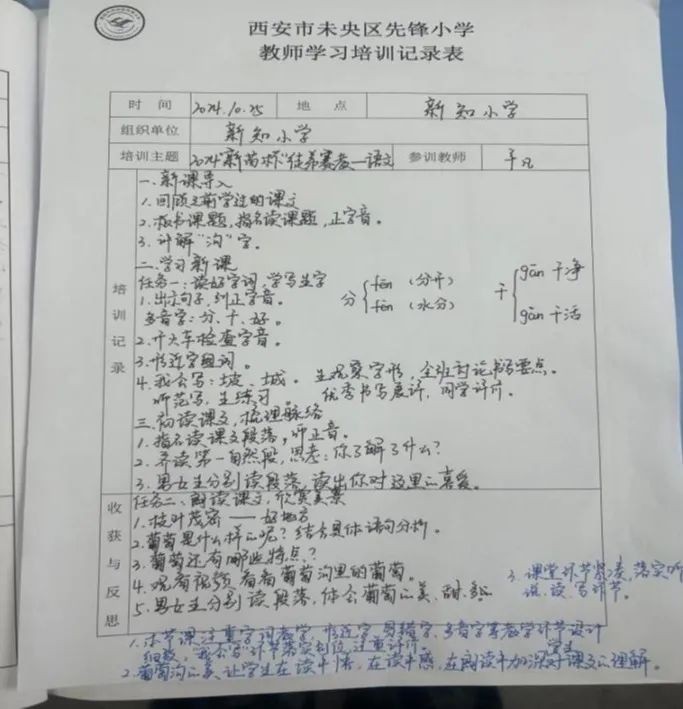 西安市未央区先锋小学
教师学习培训记录表
时 间 2024.10.25 地 点 新知小学
组织单位 新知小学
培训主题 2024"新苗杯"徒弟赛教—语文 参训教师 于凡
培训记录
一、新课导入
1.回顾之前学过的课文
2.板书课题,指名读课题,正字音。
3.讲解"沟"字。
二、学习新课
任务一:读好字词,学写生字
1.出示句子,纠正字音。
多音字:分、干、好。
分 fēn (分开)
fèn (水分)
干 gān 干净
gàn 干活
2.开火车检查字音。
3.形近字组词。
4.我会写:坡、城。 生观察字形,全班讨论书写要点。
师范写,生练习。 优秀书写展评,同学评价。
三、初读课文,梳理脉络
1.指名读课文段落,师正音。
2.齐读第一自然段,思考:你了解了什么?
3.男女生分别读段落,读出你对这里的喜爱。
收获与反思
任务二、阅读课文,欣赏美景
1.枝叶茂密——好地方
2.葡萄是什么样的呢?结合具体语句分析。
3.葡萄还有哪些特点?
4.观看视频,看看葡萄沟里的葡萄。
5.男女生分别读段落,体会葡萄的美、甜、多。
1.本节课注重字词教学,形近字、易错字、多音字等教学环节设计
细致,"我会写"环节落实到位,注重评价。
2.葡萄沟的美让学生在读中悟,在读中感,在阅读中加深学生对课文的理解。
3.课堂环节紧凑,落实听
说、读、写环节。